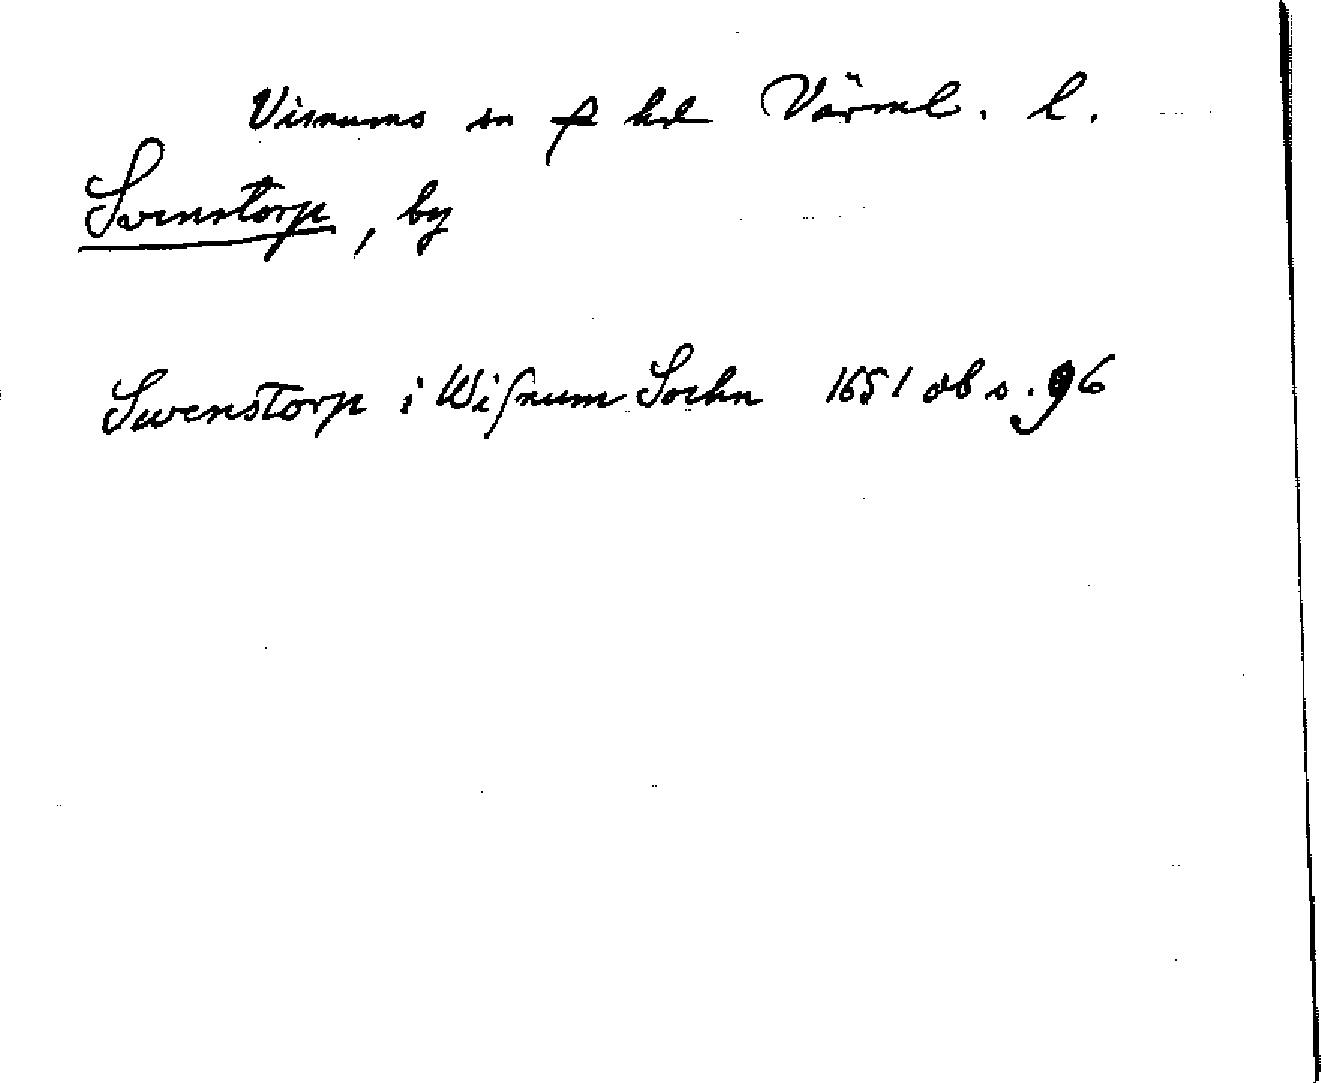 Visnums sn hd Värml. l.
Svenstorp, by
Swenstorp i Wiſnum Sochn 1651 db s. 96